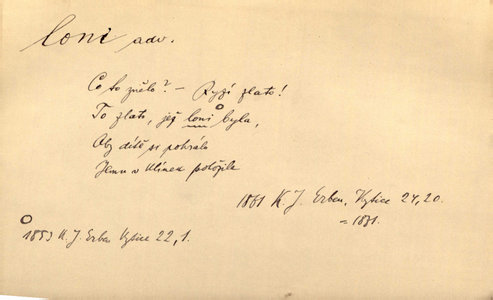 loni adv.
Co to znělo? – Ryzí zlato!
To zlato, jež loni byla,
Aby dítě si pohrálo
Jemu v klínek položila
1861 K. J. Erben, Kytice 24, 20.
= 1871.
1853 K. J. Erben Kytice 22, 1.